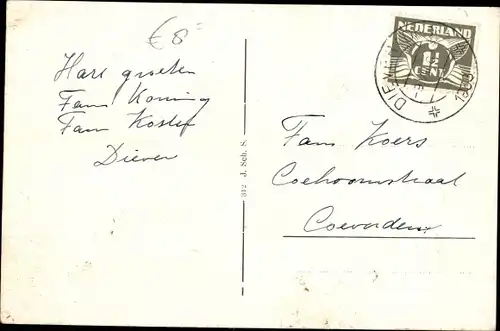 €8=
Hart. groeten
Fam Koning
Fam Koster
Diever
312 J. Sch. S.
NEDERLAND
1½
CENT
Fam Koers
Coehoornstraat
Coevorden